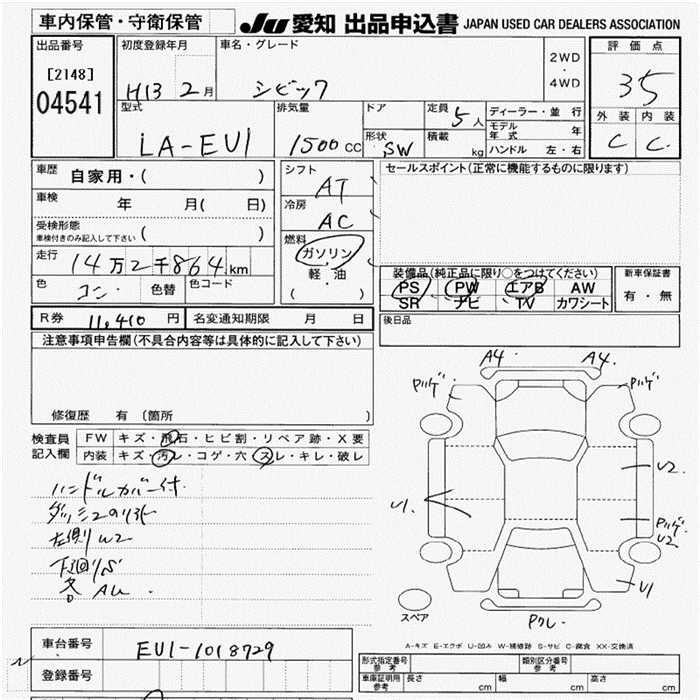 車内保管・守衛保管
JU 愛知 出品申込書 JAPAN USED CAR DEALERS ASSOCIATION
出品番号
[2148]
04541
初度登録年月
H13 2月
車名・グレード
シビック
2WD
・
4WD
評価点
35
外装 内装
C C
型式
LA-EU1
排気量
1500 CC
ドア
形状
SW
定員
5人
積載
kg
ディーラー・並行
モデル年式 年
ハンドル 左・右
車歴
自家用・( )
車検
年 月( 日)
受検形態
車検付きのみ記入して下さい ( )
走行
14万2千864km
色
色替
色コード
シフト
AT
冷房
AC
燃料
ガソリン
軽・油
( )
セールスポイント(正常に機能するものに限ります)
装備品(純正品に限り○をつけてください)
PS PW エアB AW
SR ナビ TV カワシート
新車保証書
有・無
R券 11,410 円
名変通知期限 月 日
後日品
注意事項申告欄(不具合内容等は具体的に記入して下さい)
修復歴 有 (箇所 )
検査員
記入欄
FW キズ・飛石・ヒビ割・リペア跡・X要
内装 キズ・汚レ・コゲ・穴・スレ・キレ・破レ
ハンドルカバー付
左側U2
A4 A4
U2
U1
U2
U1
スペア
A-キズ E-エクボ U-凹み W-補修跡 S-サビ C-腐食 XX-交換済
車台番号
EU1-1018729
登録番号
形式指定番号
参考
類別区分番号
参考
車庫証明用
参考
長さ cm
幅 cm
高さ cm